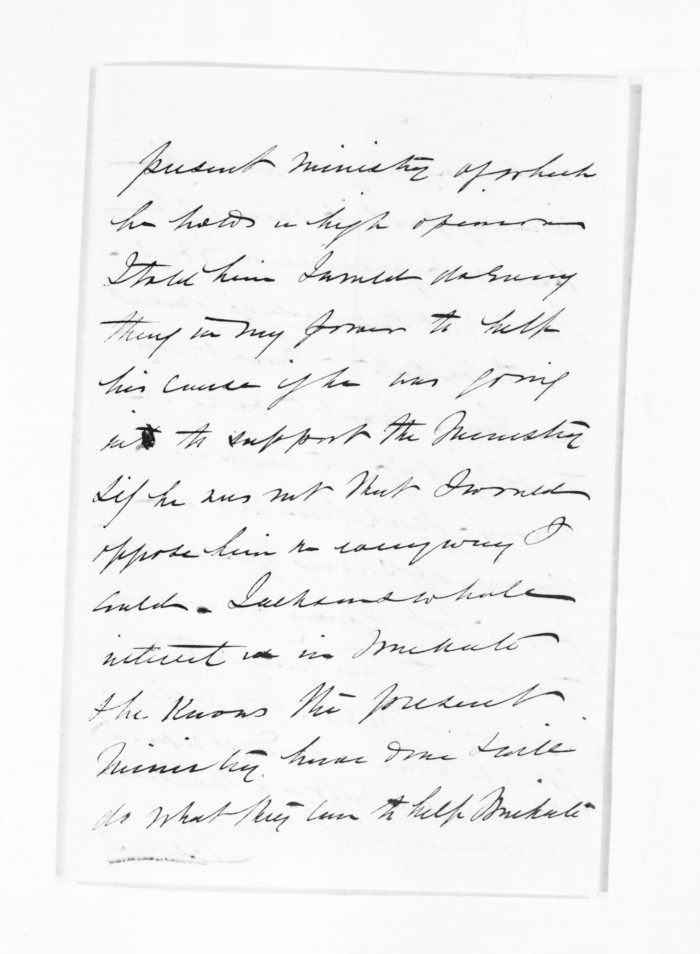 present Ministry of which
he holds a high opinion
I told him I would do every
thing in my power to help
his cause if he was going
in to support the Ministry
& if he was not that I would
oppose him in every way I
could. Jacksons whole
interest is in Waikato
& he knows the present
Ministry have done & will
do what they can to help Waikato